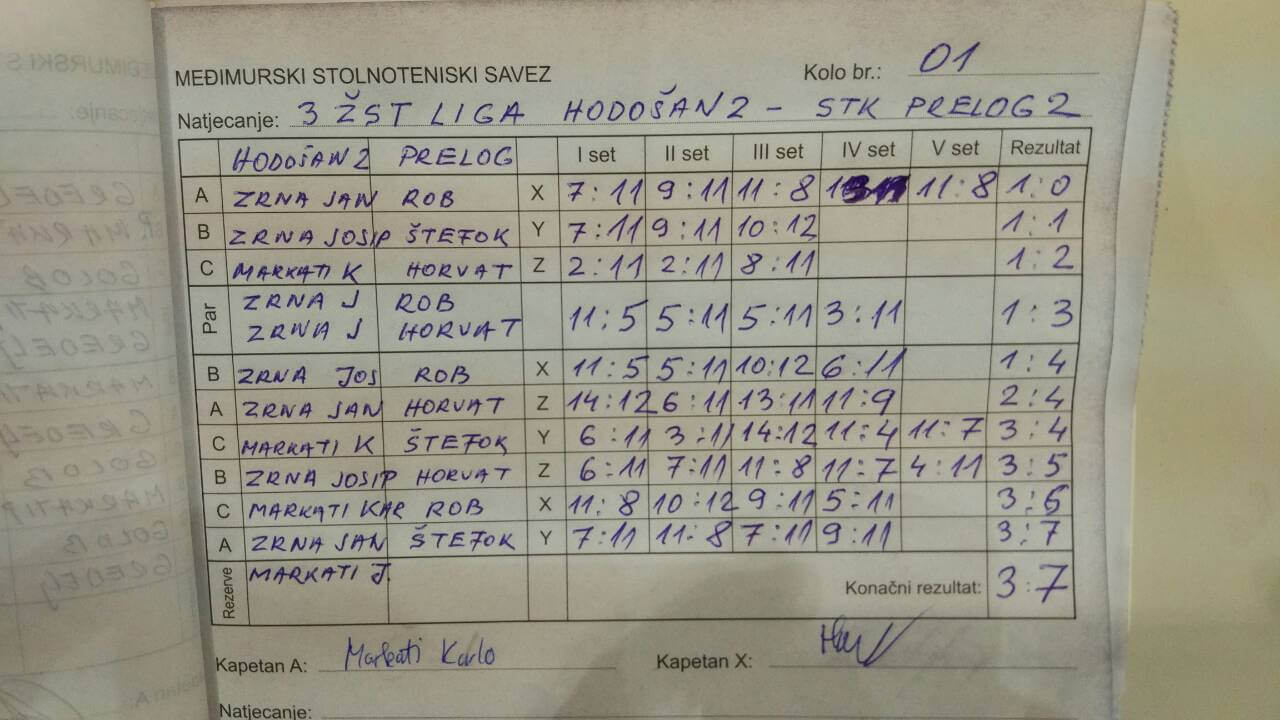 MEĐIMURSKI STOLNOTENISKI SAVEZ Kolo br.: 01
Natjecanje: 3 ŽST LIGA HODOŠAN 2 - STK PRELOG 2
HODOŠAN 2 PRELOG I set II set III set IV set V set Rezultat
A ZRNA JAN ROB X 7:11 9:11 11:8 11:8 1:0
B ZRNA JOSIP ŠTEFOK Y 7:11 9:11 10:12 1:1
C MARKATI K HORVAT Z 2:11 2:11 8:11 1:2
Par ZRNA J ROB
ZRNA J HORVAT 11:5 5:11 5:11 3:11 1:3
B ZRNA JOS ROB X 11:5 5:11 10:12 6:11 1:4
A ZRNA JAN HORVAT Z 14:12 6:11 13:11 11:9 2:4
C MARKATI K ŠTEFOK Y 6:11 3:11 14:12 11:4 11:7 3:4
B ZRNA JOSIP HORVAT Z 6:11 7:11 11:8 11:7 4:11 3:5
C MARKATI KAR ROB X 11:8 10:12 9:11 5:11 3:6
A ZRNA JAN ŠTEFOK Y 7:11 11:8 7:11 9:11 3:7
Rezerve MARKATI J. Konačni rezultat: 3:7
Kapetan A: Markati Karlo Kapetan X:
Natjecanje: